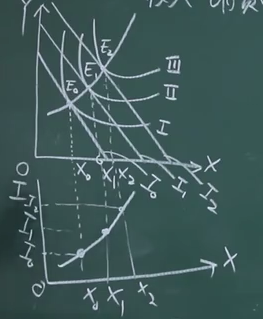 Y
E₂
E₁
E₀
III
II
I
X₀ X₁ X₂
X
I₀ I₁ I₂
O
I
I₂
I₁
I₀
O
X₀ X₁ X₂
X